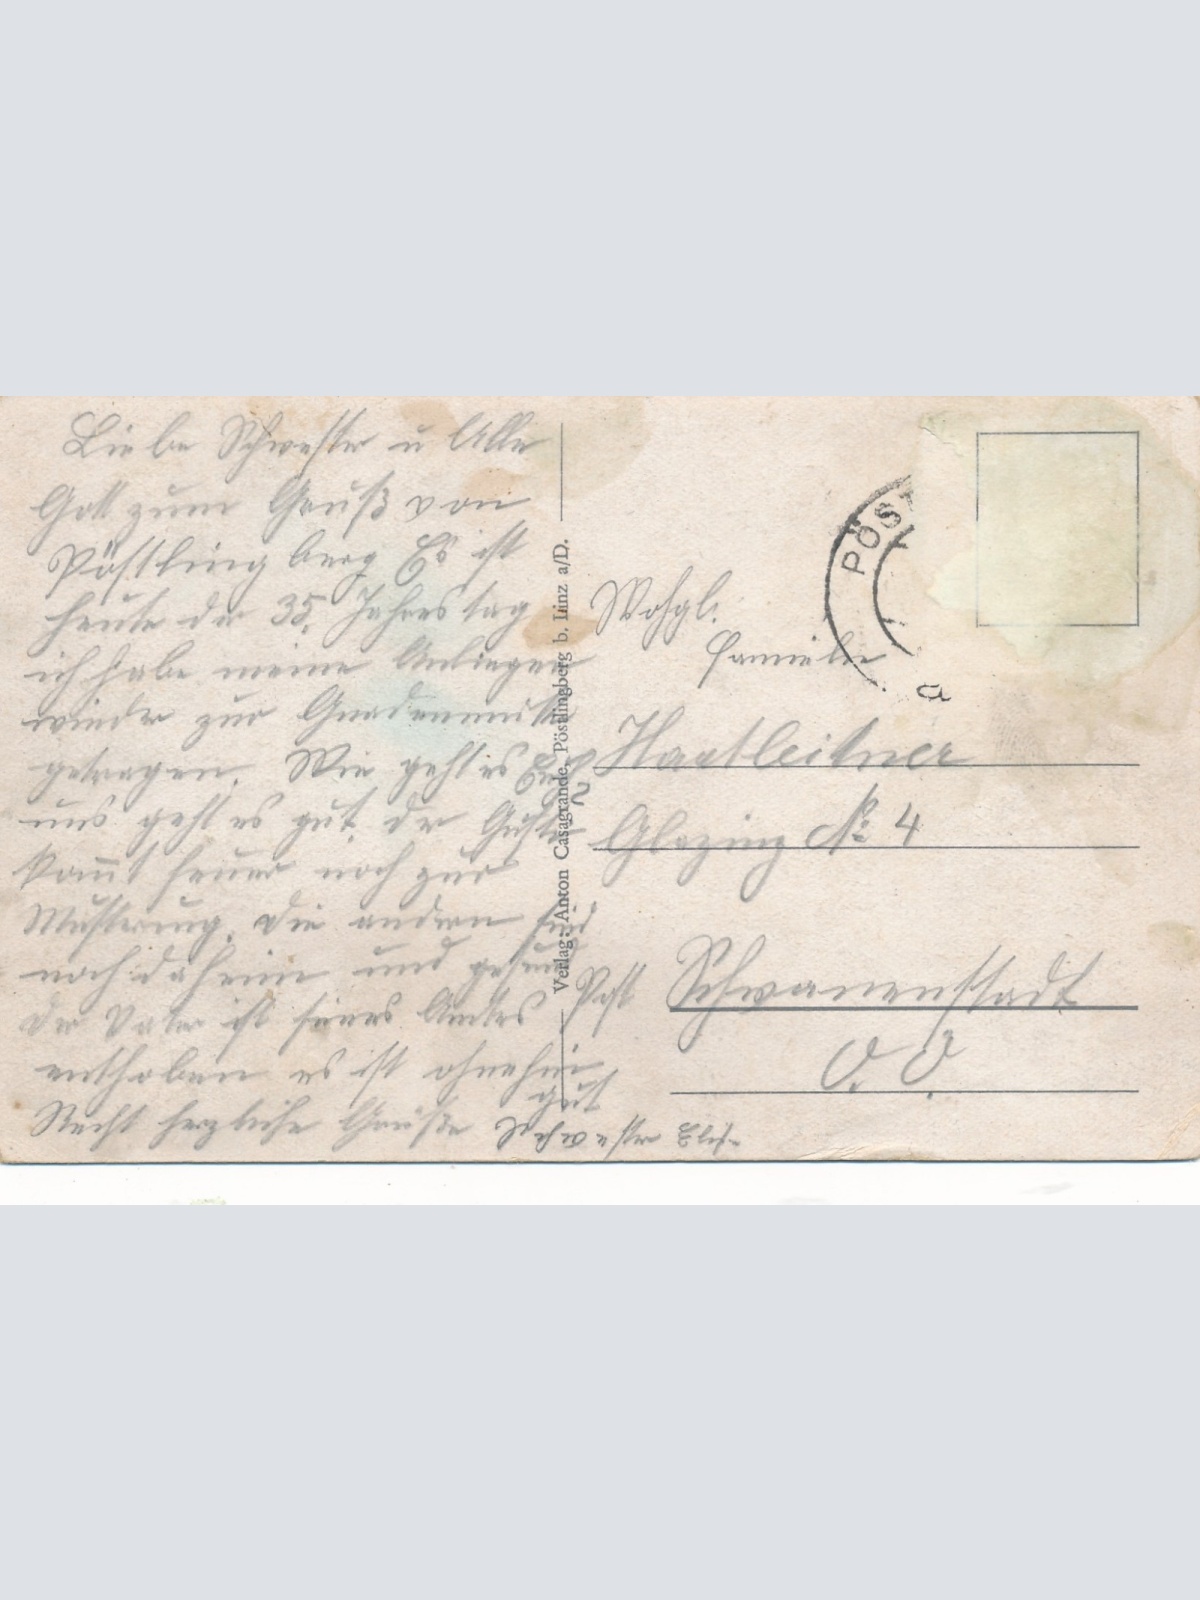 Liebe Schwester u Alle
Gott zum Gruß von
Pöstlingberg Es ist
heute der 35. Jahrestag
ich habe meine Anliegen
wieder zur Gnadenmutter
getragen. Wie geht es Euch?
uns geht es gut, der
kommt heuer noch zur
Musterung. Die andern sind
noch daheim und gesund
der Vater ist seines Amtes
enthoben es ist ohnehin
gut
Recht herzliche Grüße Schwester Elis.
Verlag: Anton Casagrande, Pöstlingberg b. Linz a/D.
PÖST
a
Wohgl.
Familie
Haatleitner
Glazing № 4
Post Schwanenstadt
O. Ö.